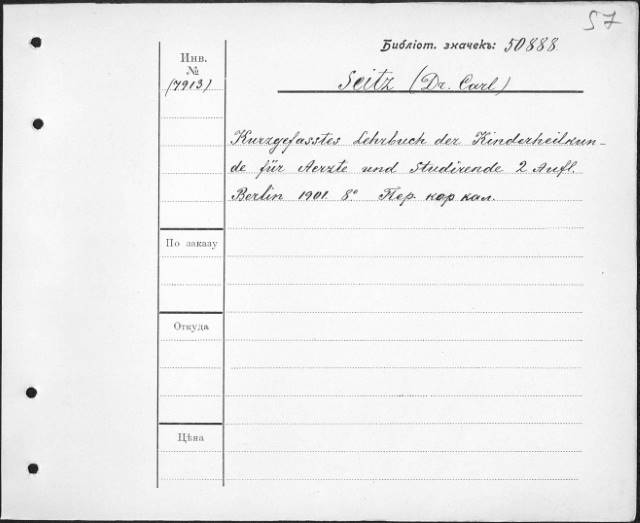 57
Библіот. значекъ: 50888
Инв.
№
17913)
Seitz (Dr. Carl)
Kurzgefasstes Lehrbuch der Kinderheilkun-
de für Aerzte und Studirende 2 Aufl.
Berlin 1901. 8° Пер. кор кал.
По заказу
Откуда
Цѣна